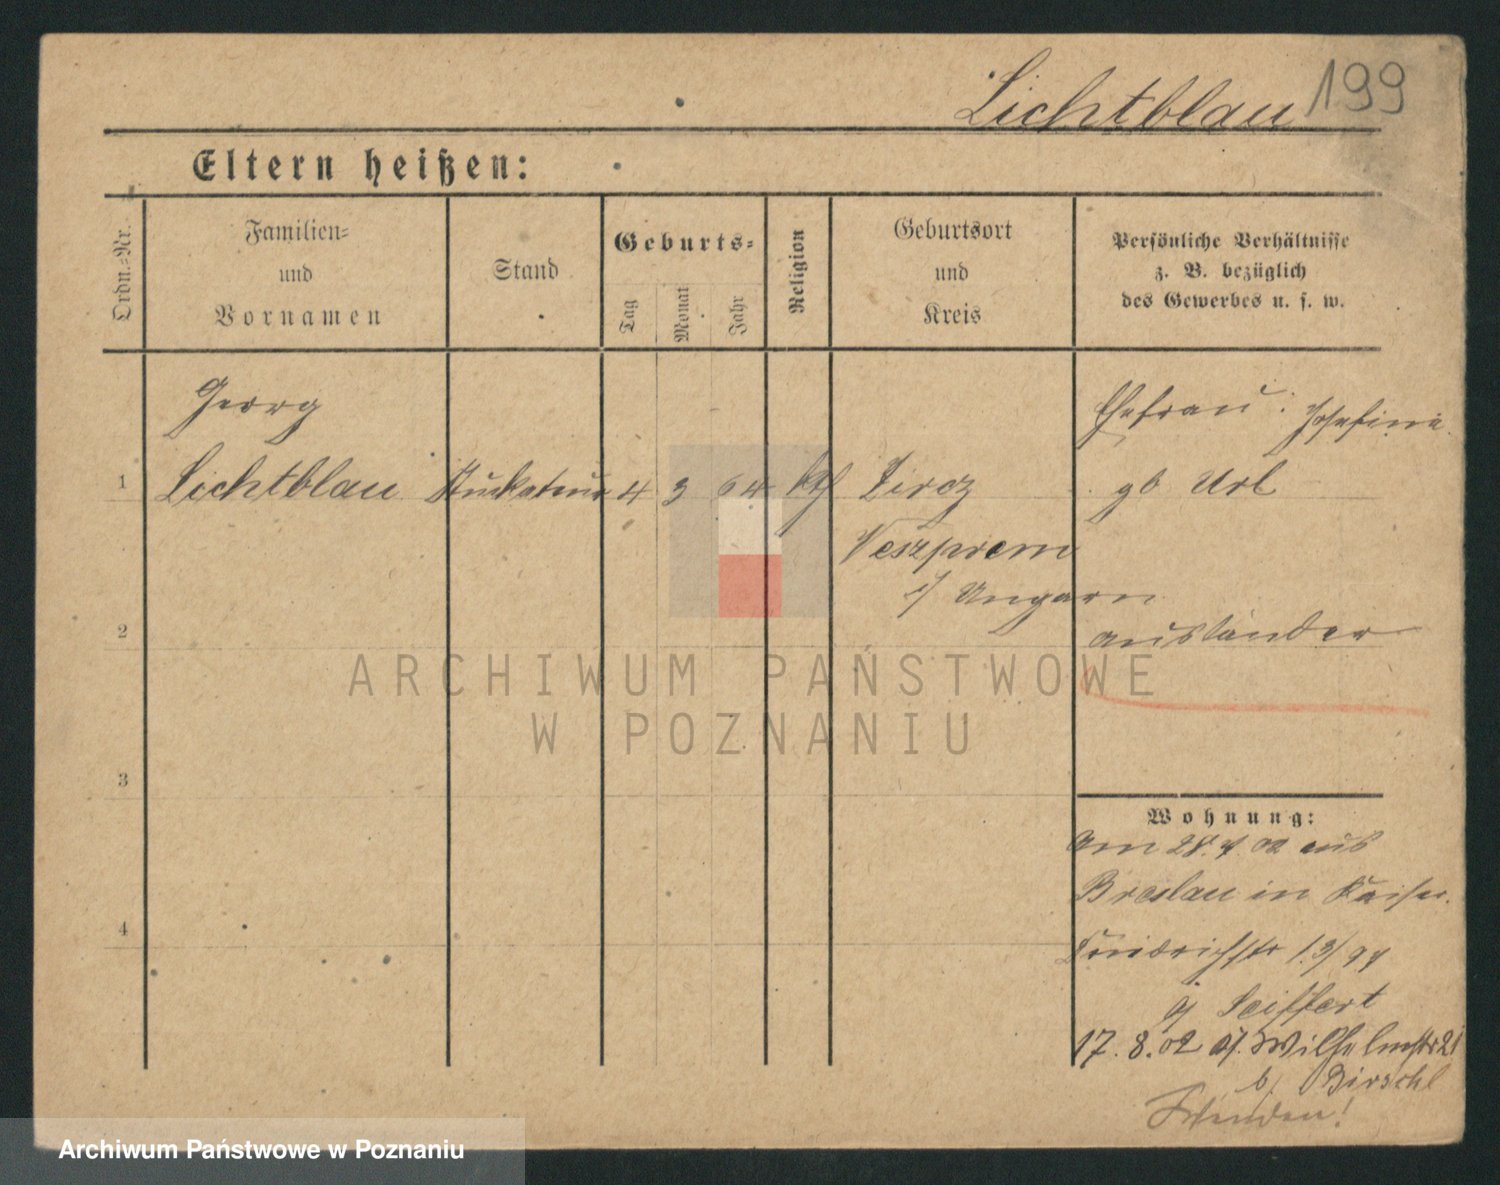 Lichtblau 199
Eltern heißen:
Ordn.-Nr.
Familien-
und
Vornamen
Stand
Geburts-
Tag
Monat
Jahr
Religion
Geburtsort
und
Kreis
Persönliche Verhältnisse
z. B. bezüglich
des Gewerbes u. s. w.
Georg
Ehefrau: Josefine
1 Lichtblau Stuckateur 4 3 64 kth Zircz
gb Url
Veszprem
i/ Ungarn
2
Ausländer
ARCHIWUM PAŃSTWOWE
W POZNANIU
3
Wohnung:
Am 28. 4. 02 aus
Breslau in Kaiser
4
Friedrichstr 13/
Seiffert
17. 8. 02 Wilhelmstr 21
b/ Birschel
Wenden!
Archiwum Państwowe w Poznaniu